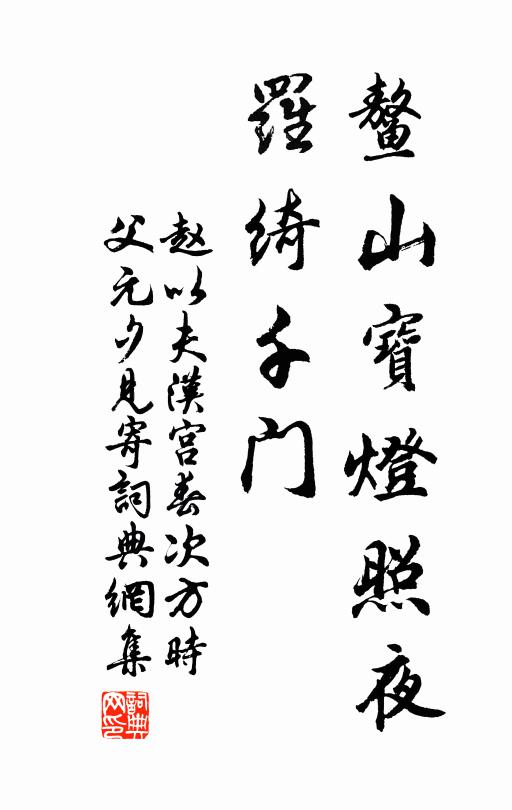 鼇山寶燈照夜
羅綺千門
赵以夫漢宮春次方時
父元夕見寄詞典網集
詞典
网印